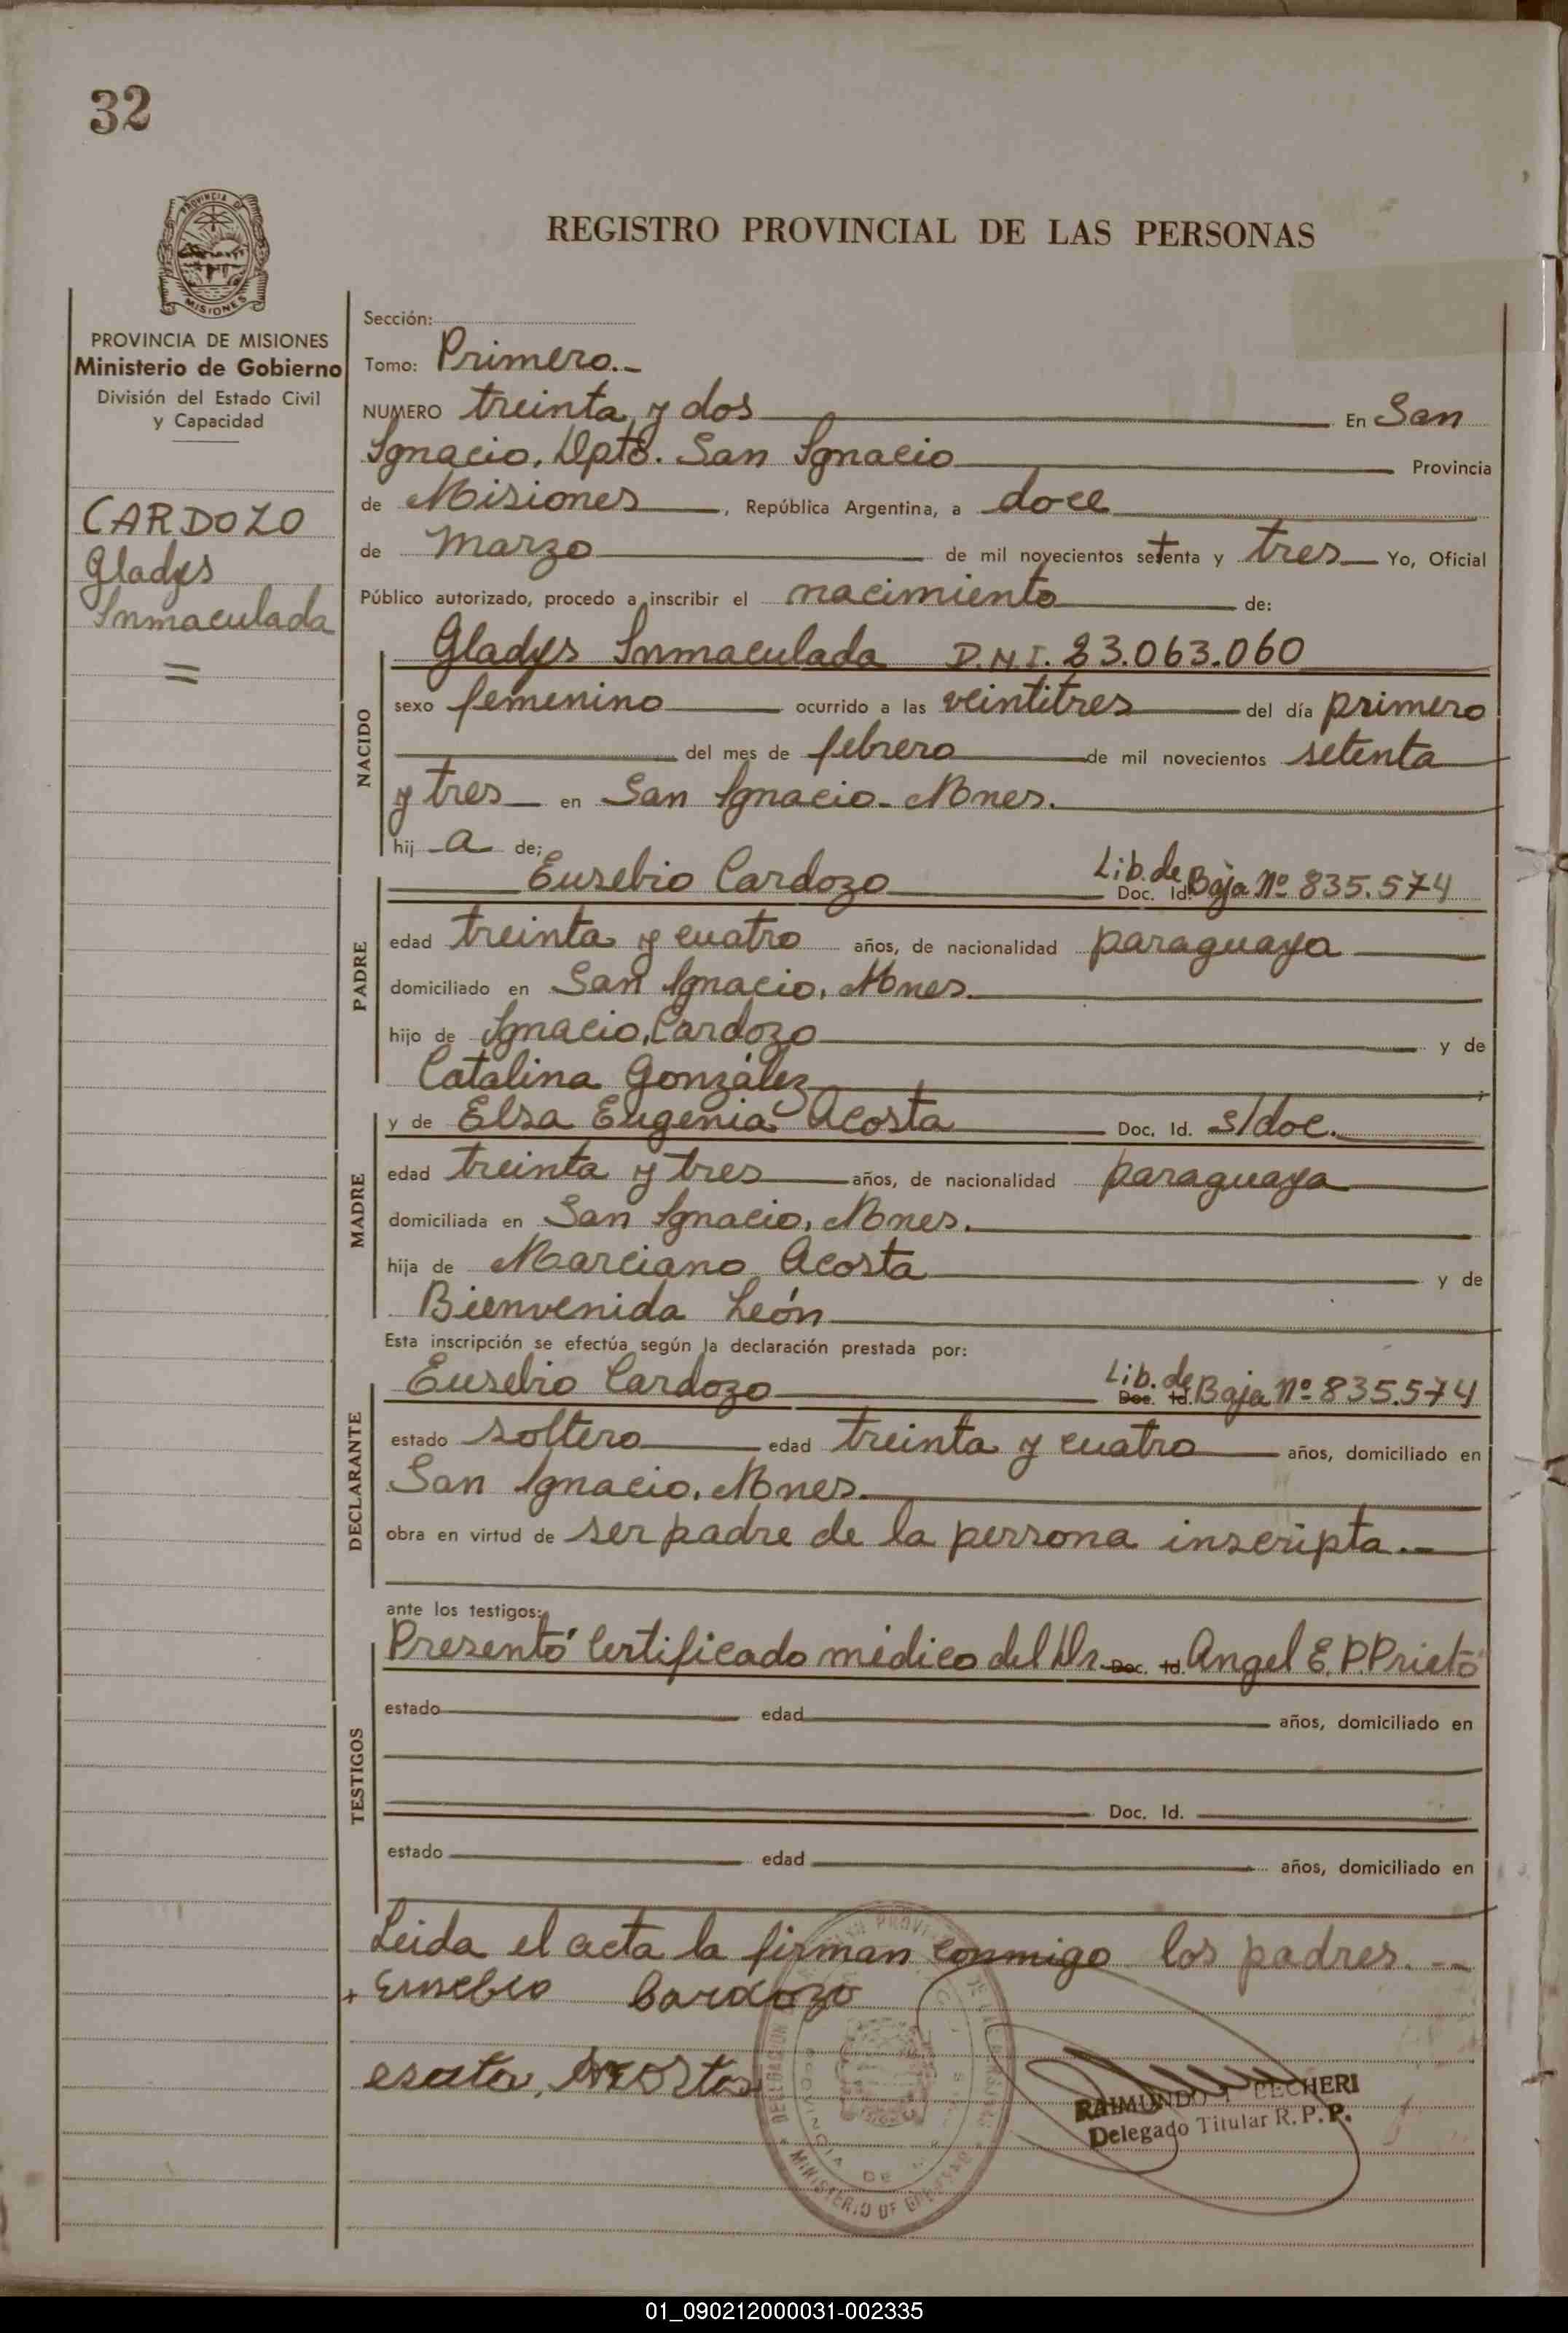 32
PROVINCIA DE
MISIONES
REGISTRO PROVINCIAL DE LAS PERSONAS
PROVINCIA DE MISIONES
Ministerio de Gobierno
División del Estado Civil
y Capacidad
CARDOZO
Gladys
Inmaculada
=
Sección:
Tomo: Primero.-
NUMERO treinta y dos En San
Ignacio, Dpto. San Ignacio Provincia
de Misiones, República Argentina, a doce
de marzo de mil novecientos setenta y tres Yo, Oficial
Público autorizado, procedo a inscribir el nacimiento de:
NACIDO
Gladys Inmaculada D.N.I. 23.063.060
sexo femenino ocurrido a las veintitres del día primero
del mes de febrero de mil novecientos setenta
y tres en San Ignacio-Mnes.
hij a de:
PADRE
Eusebio Cardozo Doc. Id. Lib. de Baja Nº 835.574
edad treinta y cuatro años, de nacionalidad paraguaya
domiciliado en San Ignacio, Mnes.
hijo de Ignacio Cardozo y de
Catalina González
MADRE
y de Elsa Eugenia Acosta Doc. Id. s/doc.
edad treinta y tres años, de nacionalidad paraguaya
domiciliada en San Ignacio, Mnes.
hija de Marciano Acosta y de
Bienvenida León
Esta inscripción se efectúa según la declaración prestada por:
DECLARANTE
Eusebio Cardozo Doc. Id. Lib. de Baja Nº 835.574
estado soltero edad treinta y cuatro años, domiciliado en
San Ignacio, Mnes.
obra en virtud de ser padre de la persona inscripta.-
ante los testigos:
TESTIGOS
Presentó Certificado médico del Dr. Doc. Id. Angel E. P. Prieto
estado edad años, domiciliado en
Doc. Id.
estado edad años, domiciliado en
Leida el acta la firman conmigo los padres.--
+ Eusebio Cardozo
Acosta
RAIMUNDO
Delegado Titular R.P.P.
MINISTERIO DE GOBIERNO
01_090212000031-002335